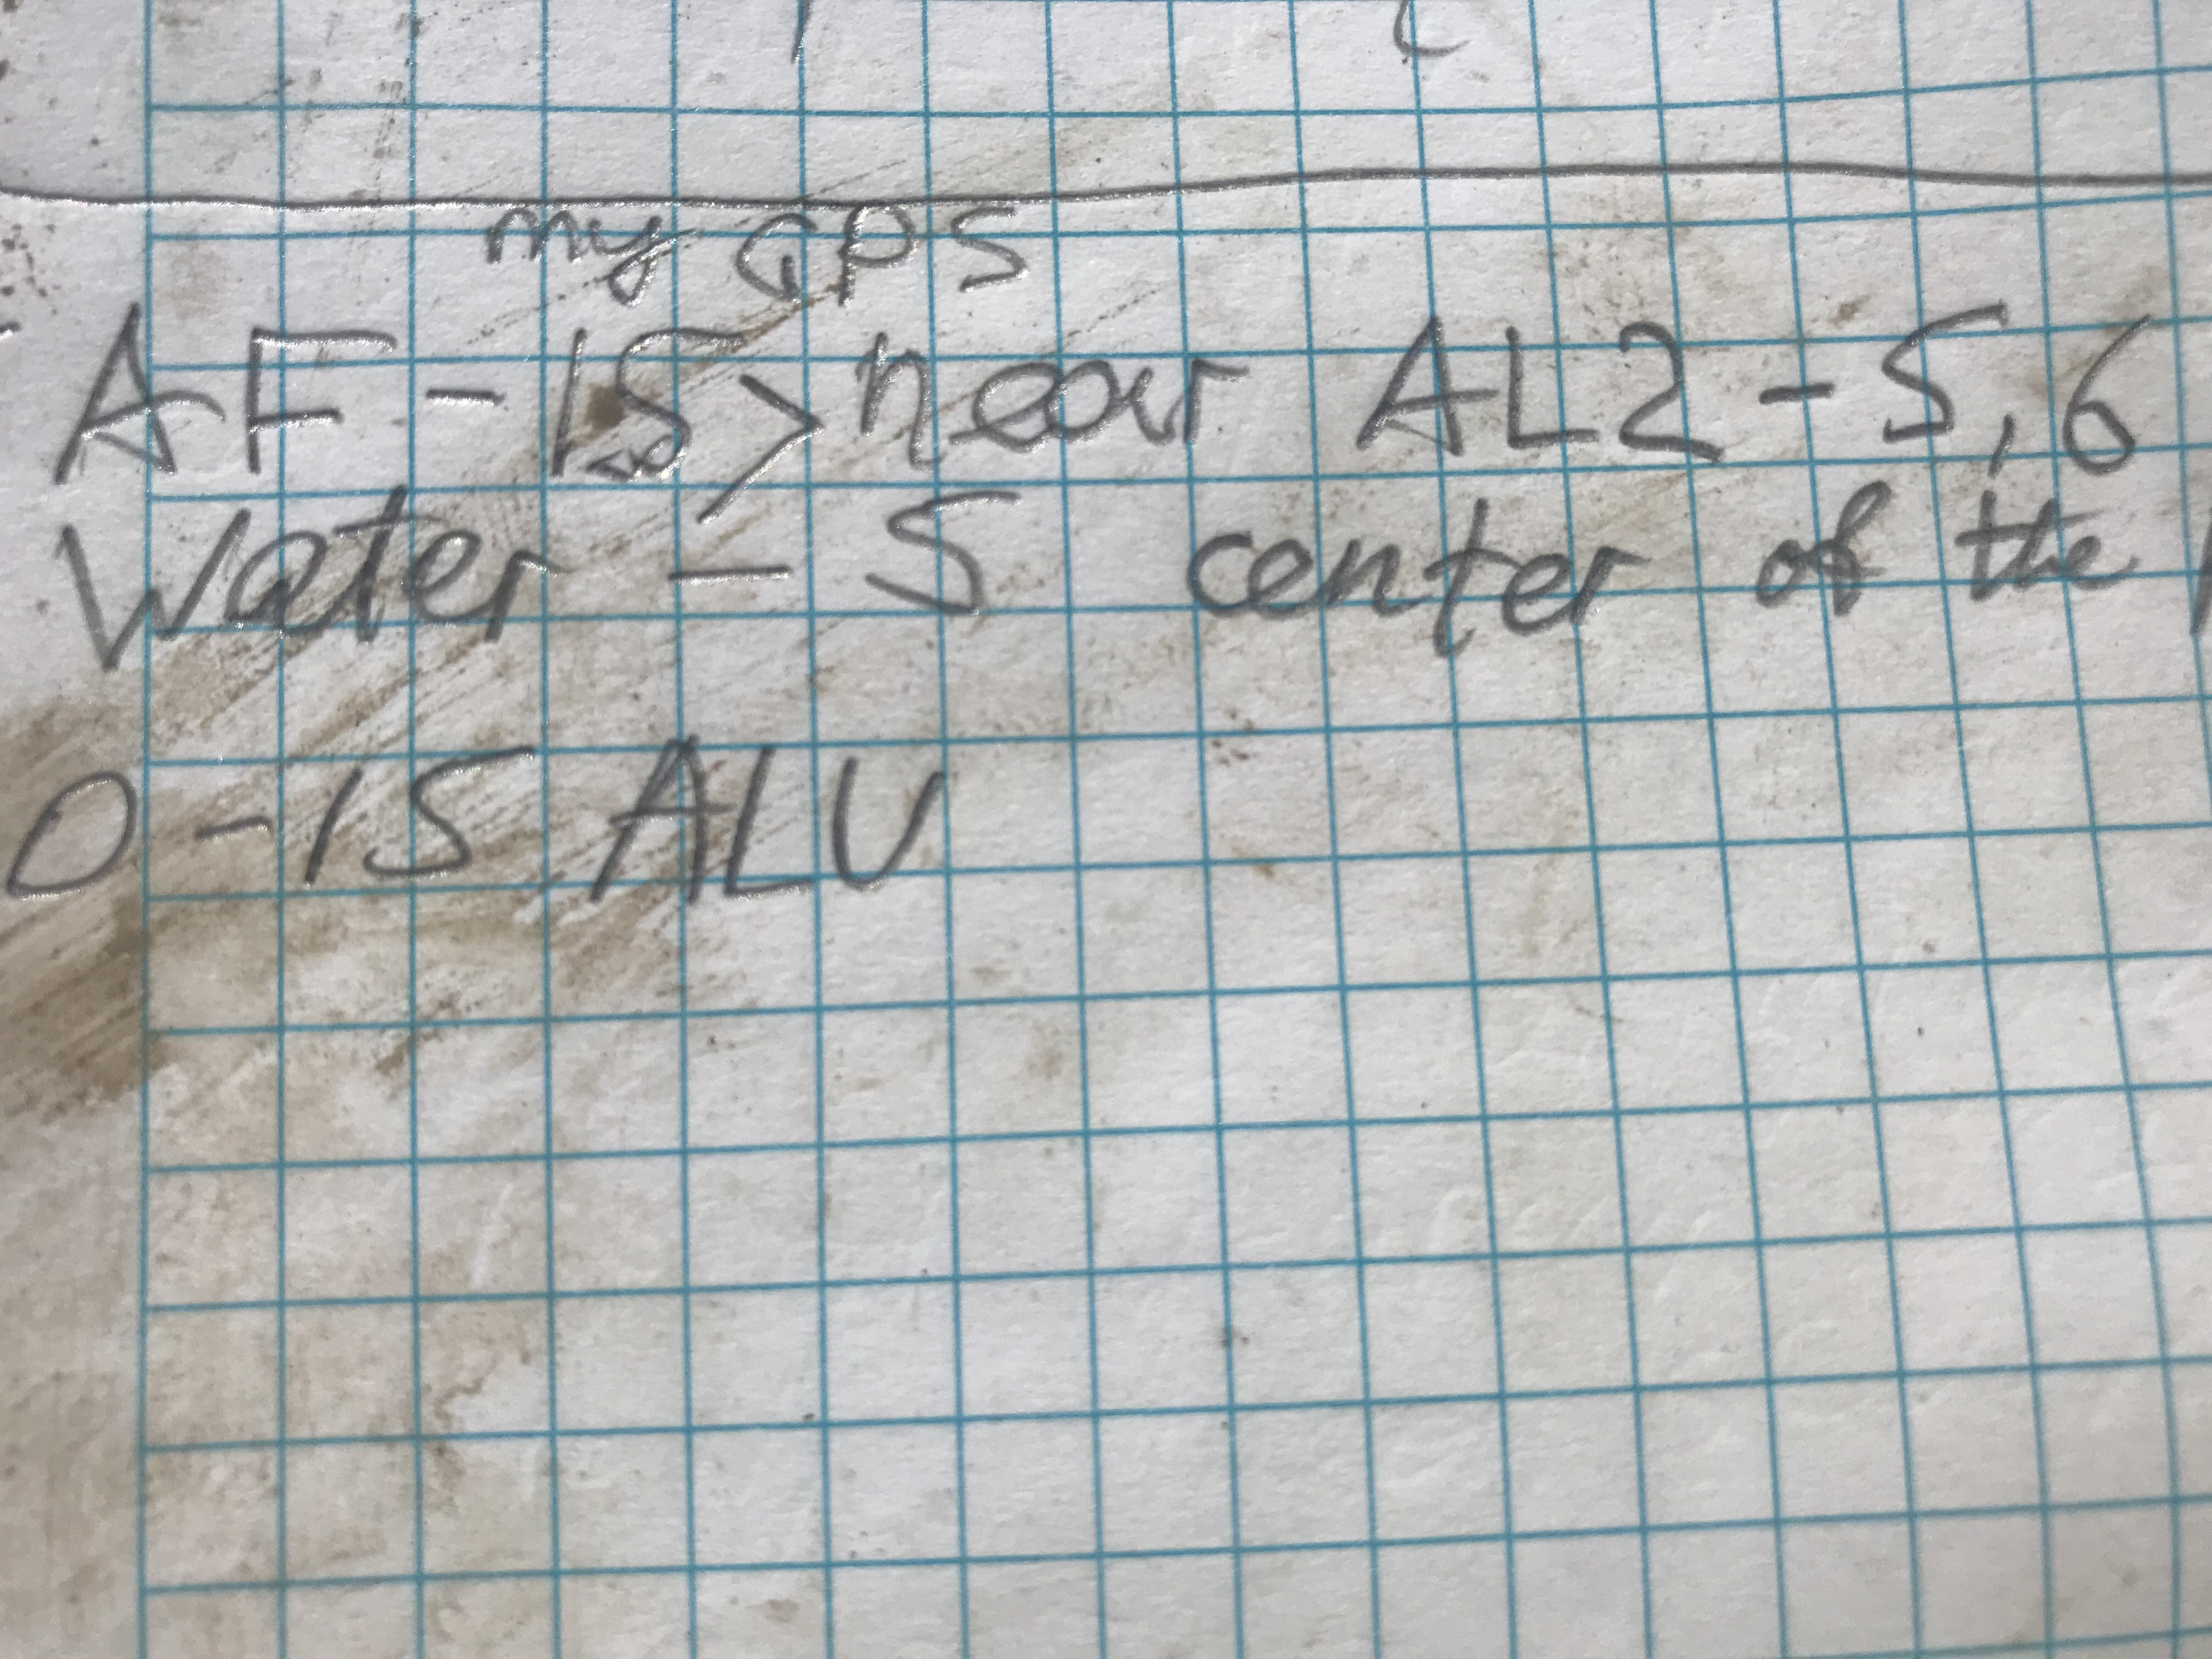 my GPS
AF - 15 > near AL2 - 5, 6
Water - 5 center of the
0 - 15 ALU